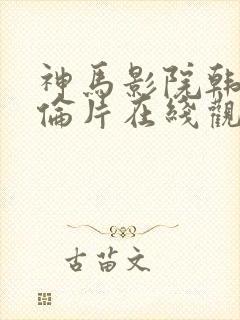 神馬影院韩
倫片在綫觀
古苗文